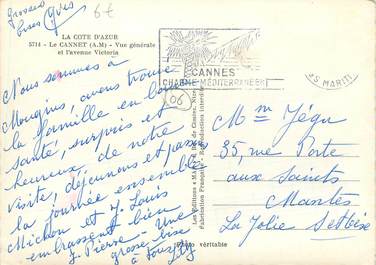 Grosses
bises Yves
6€
LA COTE D'AZUR
5714 - Le CANNET (A.M) - Vue générale
et l'avenue Victoria
Nous sommes à
Mougins, avons trouvé
la famille en bonne
santé, surpris et
heureux de notre
visite, déjeunons et passons
la journée ensemble
Michon et J. Louis
embrassent bien
J. Pierre - Une
grosse bise
à
Lily
CANNES
CHARME MEDITERRANEEN
06
RS MARITI
Fabrication Française - Reproduction interdite
Photo véritable
Mme Jégu
35, rue Porte
aux Saints
Mantes
La Jolie S et Oise